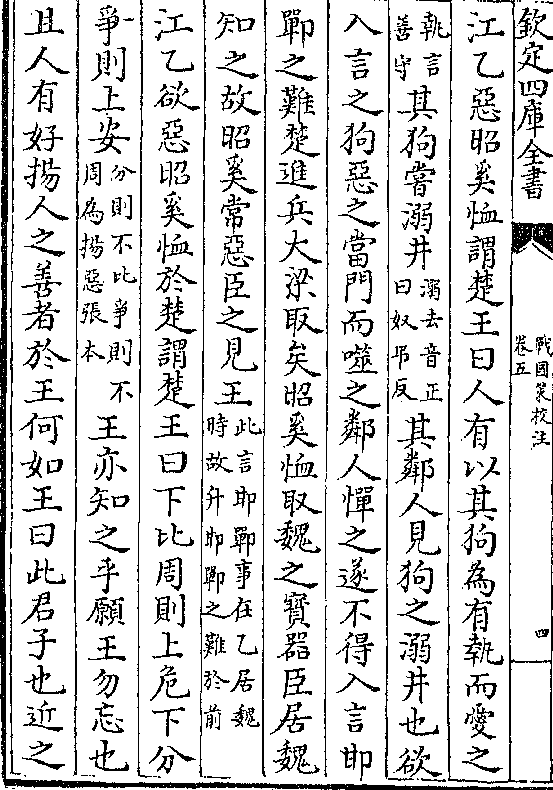 欽定四庫全書
戰國策校注
卷五
四
江乙惡昭奚恤謂楚王曰人有以其狗為有執而愛之
執言善守其狗嘗溺井溺去音正曰奴吊反其鄰人見狗之溺井也欲
入言之狗惡之當門而噬之鄰人憚之遂不得入言邯
鄲之難楚進兵大梁取矣昭奚恤取魏之寳器臣居魏
知之故昭奚常惡臣之見王此言邯鄲事在乙居魏時故升邯鄲之難於前
江乙欲惡昭奚恤於楚謂楚王曰下比周則上危下分
爭則上安分則不比爭則不周為揚惡張本王亦知之乎願王勿忘也
且人有好揚人之善者於王何如王曰此君子也近之